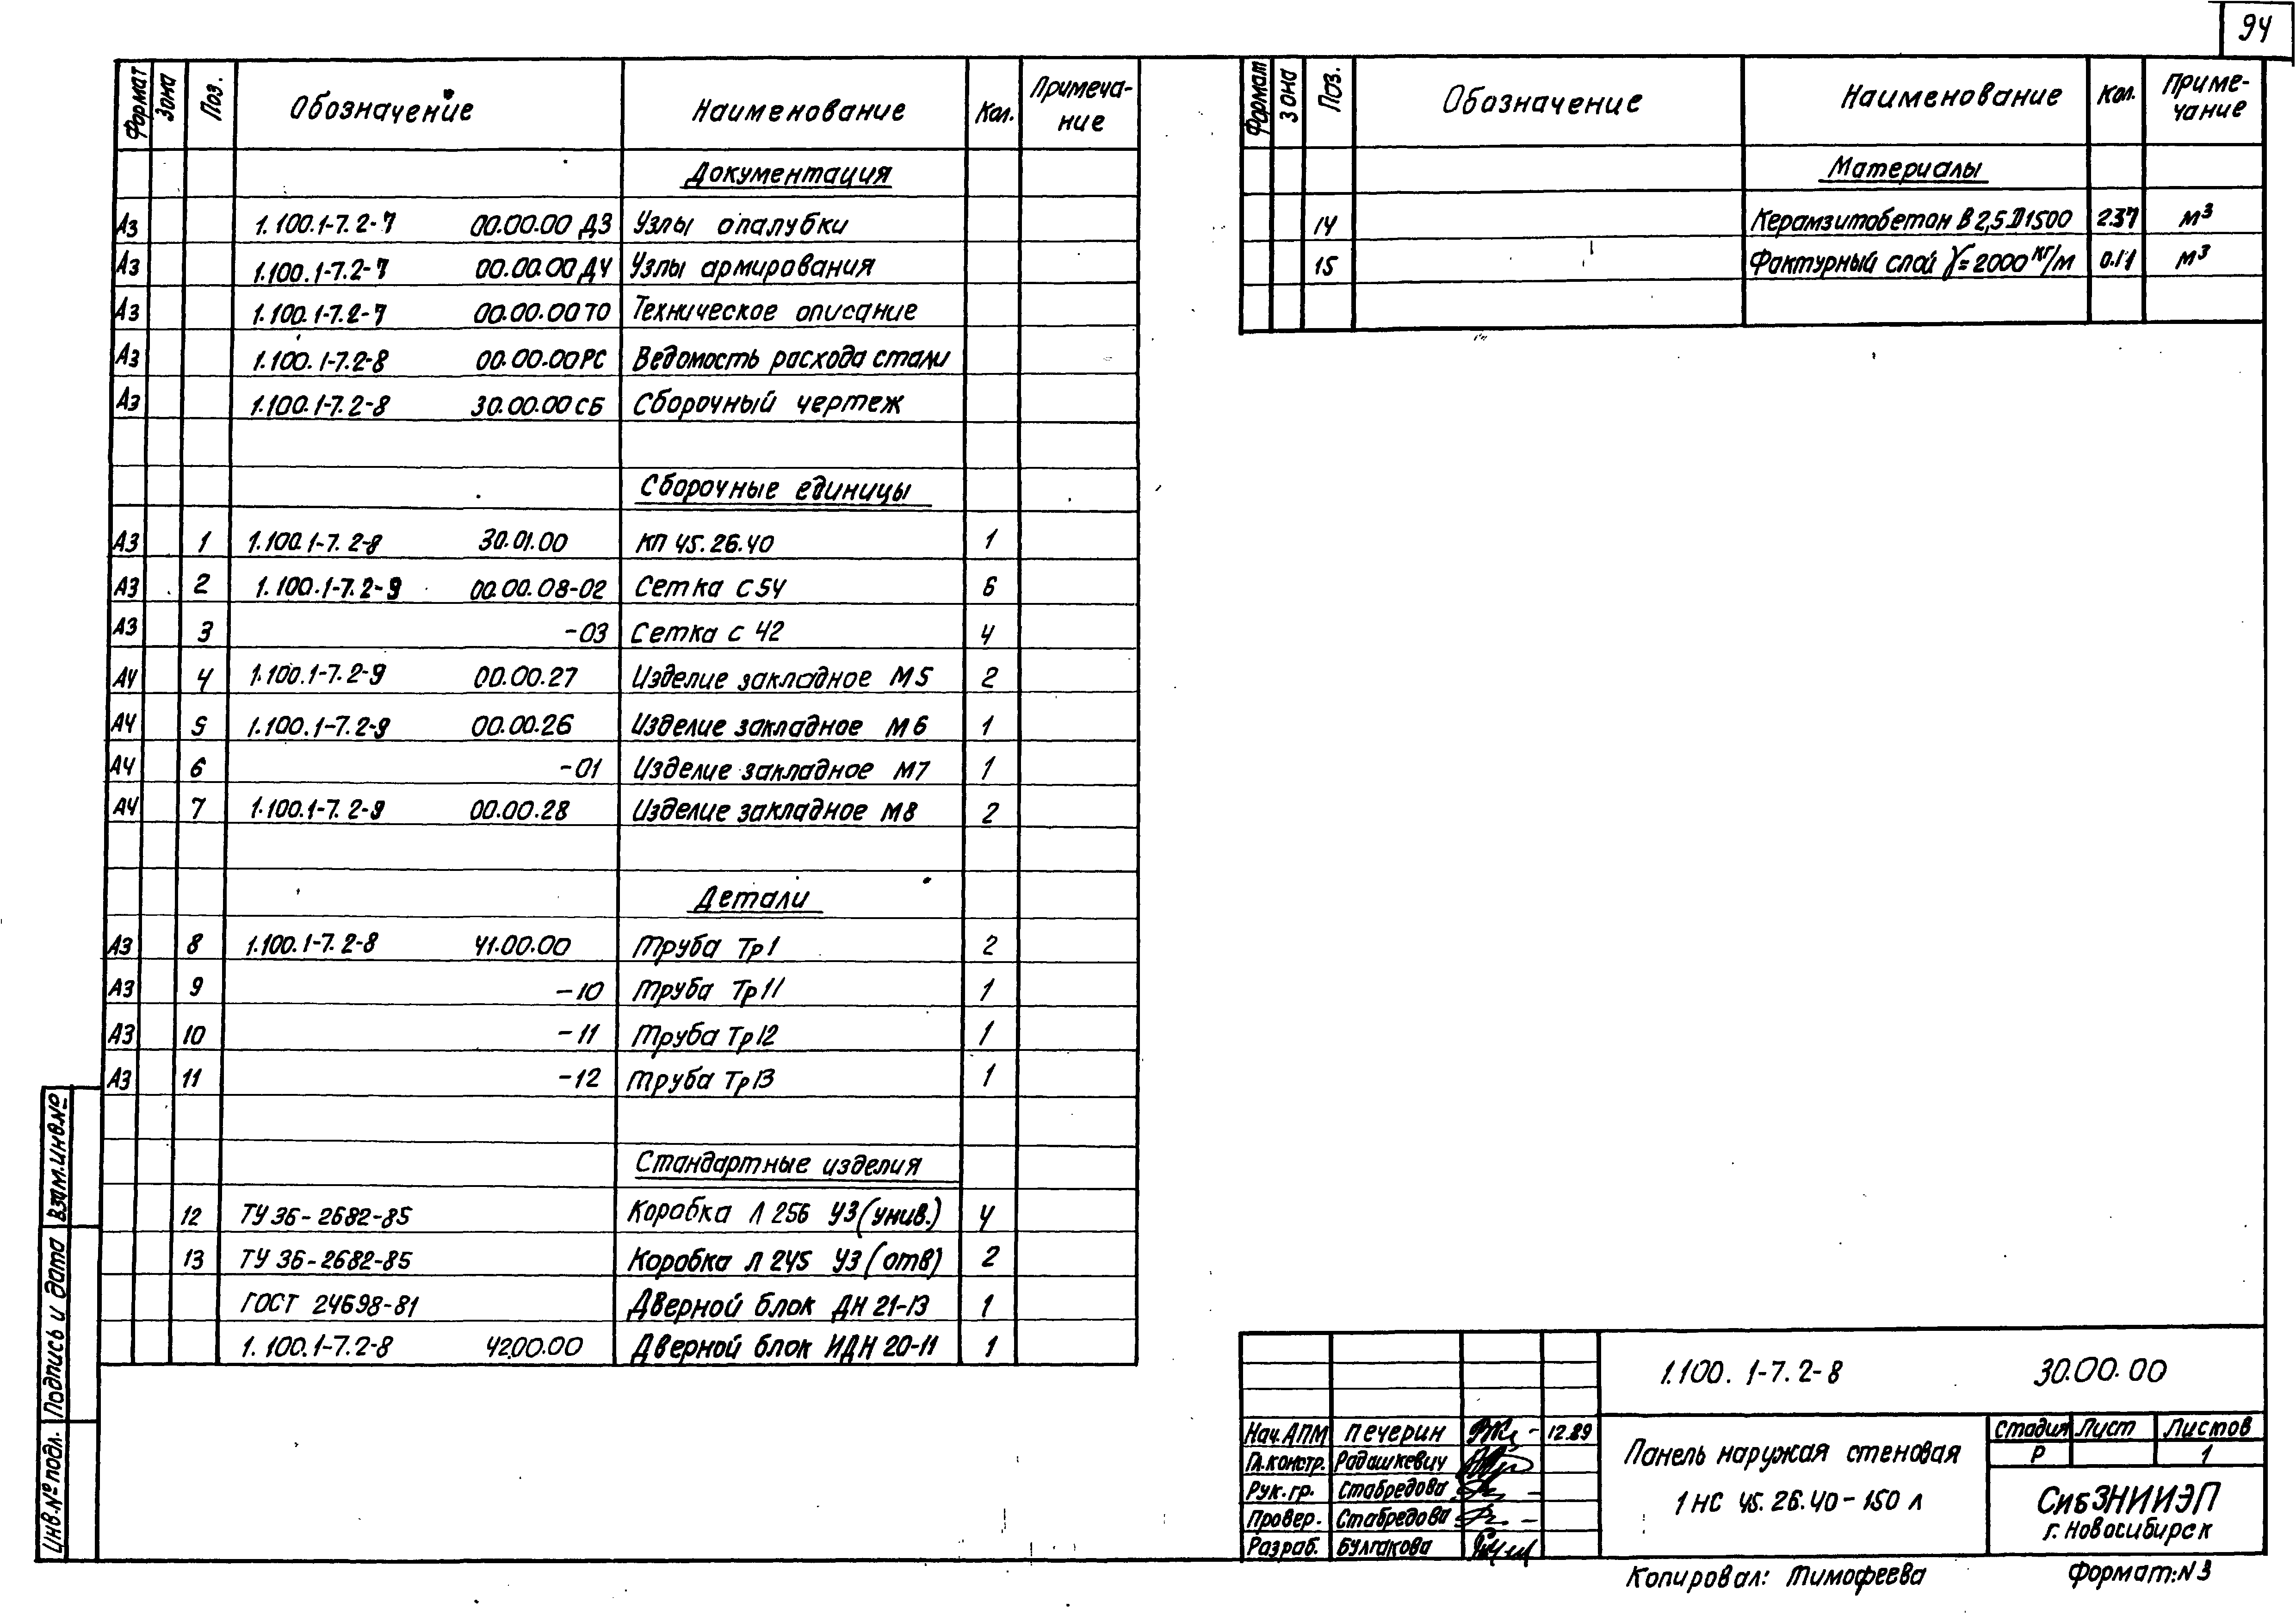 94
Формат Зона Поз. Обозначение Наименование Кол. Примеча-
ние
Документация
А3 1.100.1-7.2-7 00.00.00 Д3 Узлы опалубки
А3 1.100.1-7.2-7 00.00.00 Д4 Узлы армирования
А3 1.100.1-7.2-7 00.00.00 ТО Техническое описание
А3 1.100.1-7.2-8 00.00.00 РС Ведомость расхода стали
А3 1.100.1-7.2-8 30.00.00 СБ Сборочный чертеж
Сборочные единицы
А3 1 1.100.1-7.2-8 30.01.00 КП 45.26.40 1
А3 2 1.100.1-7.2-9 00.00.08-02 Сетка С54 6
А3 3 -03 Сетка С 42 4
А4 4 1.100.1-7.2-9 00.00.27 Изделие закладное М5 2
А4 5 1.100.1-7.2-9 00.00.26 Изделие закладное М6 1
А4 6 -01 Изделие закладное М7 1
А4 7 1.100.1-7.2-9 00.00.28 Изделие закладное М8 2
Детали
А3 8 1.100.1-7.2-8 41.00.00 Труба Тр1 2
А3 9 -10 Труба Тр11 1
А3 10 -11 Труба Тр12 1
А3 11 -12 Труба Тр13 1
Стандартные изделия
12 ТУ 36-2682-85 Коробка Л 256 У3 (унив.) 4
13 ТУ 36-2682-85 Коробка Л 245 У3 (отв) 2
ГОСТ 24698-81 Дверной блок ДН 21-13 1
1.100.1-7.2-8 42.00.00 Дверной блок ИДН 20-11 1
Формат Зона Поз. Обозначение Наименование Кол. Приме-
чание
Материалы
14 Керамзитобетон В 2,5 D1500 2.37 м³
15 Фактурный слой γ=2000 кг/м 0.11 м³
Взам.инв.№
Подпись и дата
Инв.№ подл.
1.100.1-7.2-8 30.00.00
Нач.АПМ Печерин 12.89
Гл.констр. Радашкевич
Рук.гр. Стабредова
Провер. Стабредова
Разраб. Булгакова
Панель наружая стеновая
1НС 45.26.40-150 л
Стадия Лист Листов
Р 1
СибЗНИИЭП
г.Новосибирск
Копировал: Тимофеева Формат:N3